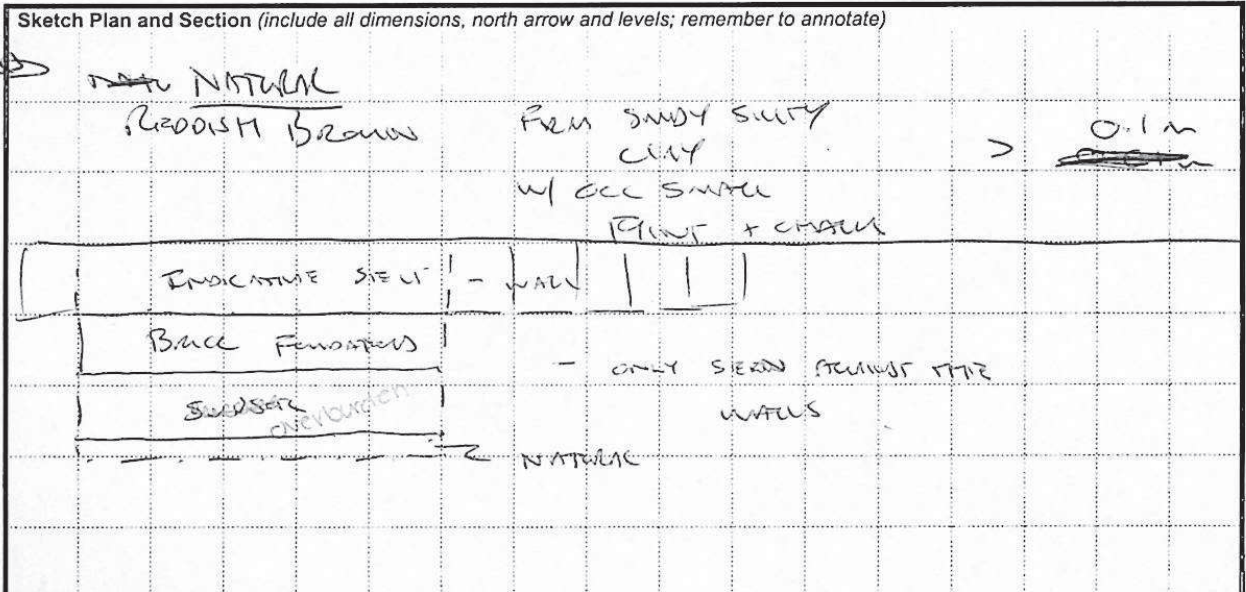 Sketch Plan and Section (include all dimensions, north arrow and levels; remember to annotate)
NATURAL
REDDISH BROWN FIRM SANDY SILTY 0.1m
CLAY >
W/ OCC SMALL
FLINT + CHALK
INDICATIVE - WALL
BRICK FOUNDATIONS
- ONLY SEEN AGAINST THE
WALLS
SUBSOIL
overburden
NATURAL